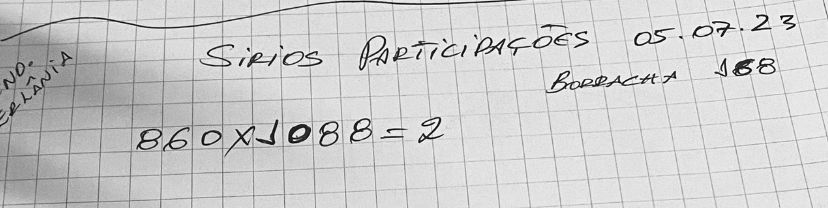 SIRIOS PARTICIPAÇÕES 05.07.23
BORRACHA 168
860X1088=2